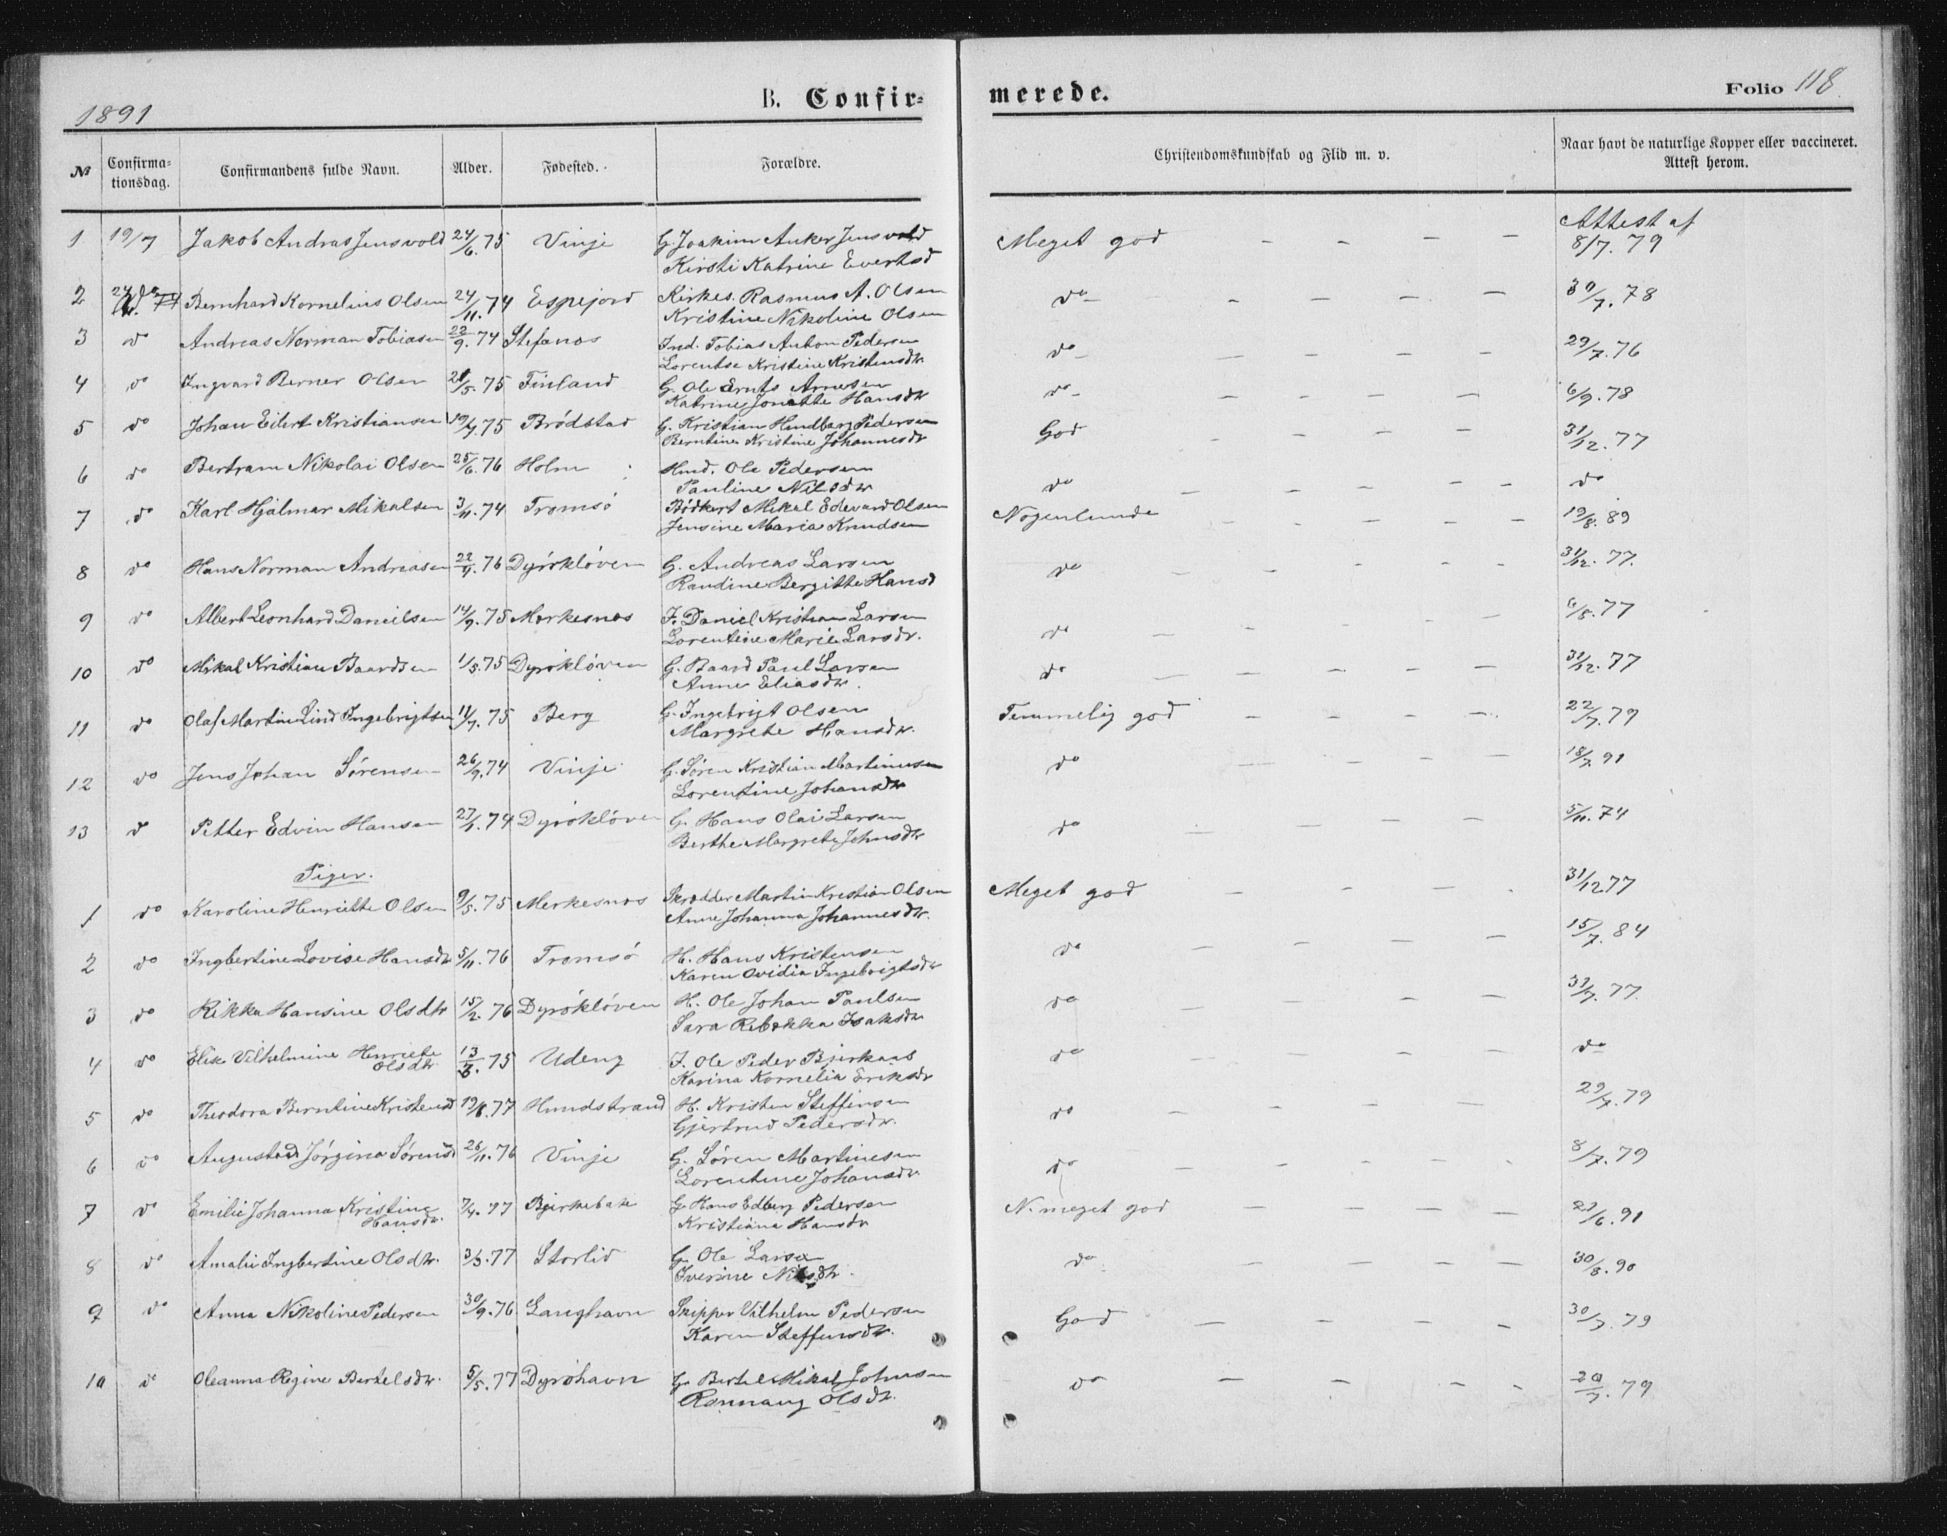 1891
B. Confirmerede.
Folio 118
№ Confirmationsdag. Confirmandens fulde Navn. Alder. Fødested. Forældre. Christendomskundskab og Flid m. v. Naar havt de naturlige Kopper eller vaccineret. Attest herom.
1 19/7 Jakob Andras Jensvold 24/6.75 Vinje G. Joakim Anker Jensvold Meget god – – – Attest af 8/7.79
Kirsti Katrine Evertsd
2 Bernhard Kornelius Olsen 24/11.74 Espejord Kirkes. Rasmus A. Olsen do – – – – 30/7.78
Kristine Nikoline Olsen
3 do Andreas Norman Tobiasen 22/9.74 Stefanos Ind. Tobias Anton Pedersen do – – – – 29/7.76
Lorentse Kristine Kristensdtr
4 do Ingvard Berner Olsen 21/5.75 Finland G. Ole Ernts Arnesen do – – – – 6/9.78
Katrine Jonette Hansdtr
5 do Johan Eilert Kristiansen 19/7.75 Brødstad G. Kristian Hindberg Pedersen God – – – – 31/12.77
Berntine Kristine Johannesdtr
6 do Bertram Nikolai Olsen 25/6.76 Holm Hmd. Ole Pedersen do – – – – do
Pauline Nilsdtr
7 do Karl Hjalmar Mikalsen 3/11.74 Tromsø Bødkert Mikal Edevard Olsen Nogenlunde – – – – 19/8.89
Jensine Maria Knudsen
8 do Hans Norman Andreasen 22/4.76 Dyrøkløven G. Andreas Larsen do – – – – 31/12.77.
Randine Bergitte Hansd
9 do Albert Leonhard Danielsen 14/9.75 Merkesnes F. Daniel Kristian Larsen do – – – – 6/8.77
Lorentine Marie Larsdr.
10 do Mikal Kristian Baardsen 1/5.75 Dyrøkløven G. Baard Paul Larsen do – – – – 31/12.77
Anne Eliasdtr.
11 do Olaf Martin Lind Ingebrigtsen 11/7.75 Berg G. Ingebrigt Olsen Temmelig god – – – 22/7.79
Margrete Hansdr.
12 do Jens Johan Sørensen 26/9.74 Vinje G. Søren Kristian Martinusen do – – – – 18/7.91
Lorentine Johansdtr
13 do Petter Edvin Hansen 27/1.74 Dyrøkløven G. Hans Olai Larsen do – – – – 5/11.74
Berthe Margrete Johnsdtr
Piger.
1 do Karoline Henriette Olsen 9/5.75 Merkesnes Skrædder Martin Kristian Olsen Meget god – – – 31/12 77
Anne Johanna Johannesdtr.
2 do Ingbertine Lovise Hansdtr 5/11.76 Tromsø H. Hans Kristensen do – – – – 15/7.84
Karen Ovidia Ingebrigtsdtr
3 do Rikka Hansine Olsdtr 15/2.76 Dyrøkløven H. Ole Johan Paulsen do – – – – 31/7.77
Sara Rebekka Isaksdtr
4 do Elise Vilhelmine Henriete Olsdtr 13/5.75 Udeng F. Ole Peder Bjerkaas do – – – – do
Karina Kornelia Eriksdtr
5 do Theodora Berntine Kristensd 19/8.77 Hundstrand H. Kristen Steffensen do – – – – 29/7.79
Gjertrud Pedersdtr.
6 do Jørgina Sørensd 26/11.76 Vinje G. Søren Martinesen do – – – – 8/7.79
Lorentine Johansdtr
7 do Emilie Johanna Kristine Hansdtr. 7/4.77 Bjerkebake G. Hans Edberg Pedersen N. meget god – – – 27/6.91
Kristiana Hansdtr
8 do Amalie Ingbertine Olsdtr. 3/3.77 Storlid G. Ole Larsen do – – – – 30/8.90
Iverine Nilsdtr.
9 do Anna Nikoline Pedersen 30/9.76 Langhavn Skipper Vilhelm Pedersen God – – – – 30/7.79
Karen Steffensdtr.
10 do Oleanna Regine Bertelsdtr. 5/5.77 Dyrøhavn G. Bertel Mikal Johnsen do – – – – 20/7.79
Rønnaug Olsdtr.